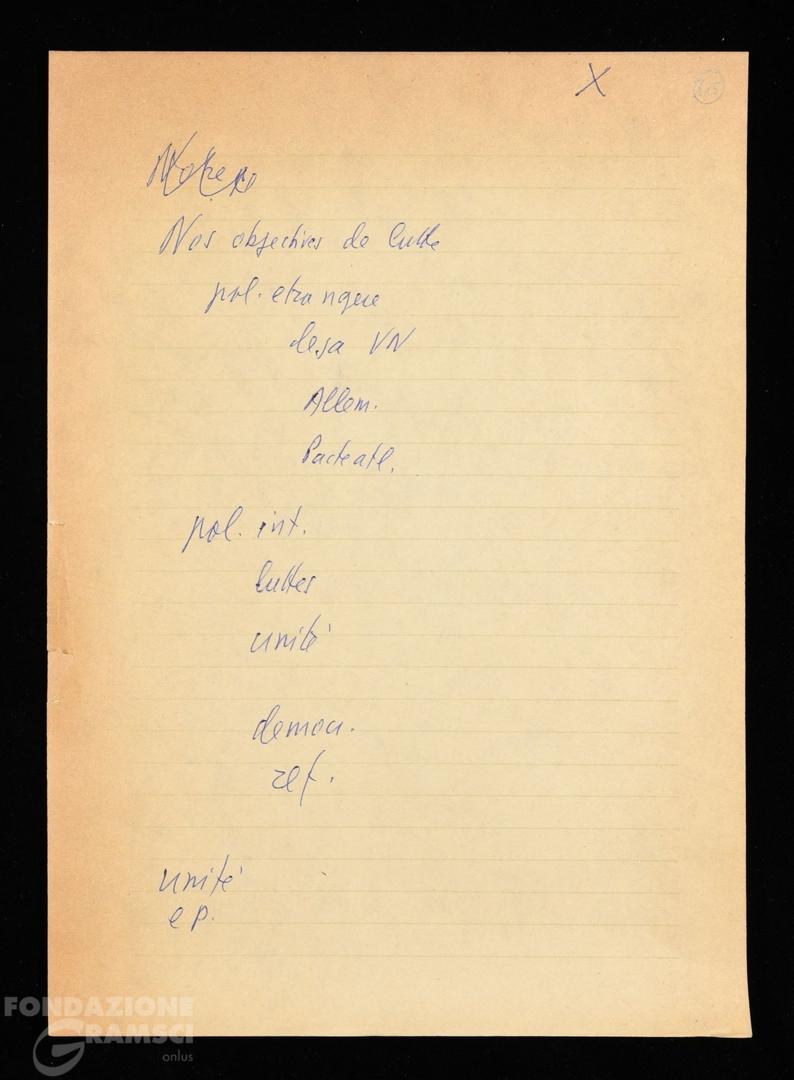 X
Nos objectives de lutte
pol. etrangere
desa VN
Allem.
Pacte atl.
pol. int.
luttes
unité
democr.
ref.
unité
e p.
FONDAZIONE
GRAMSCI
onlus